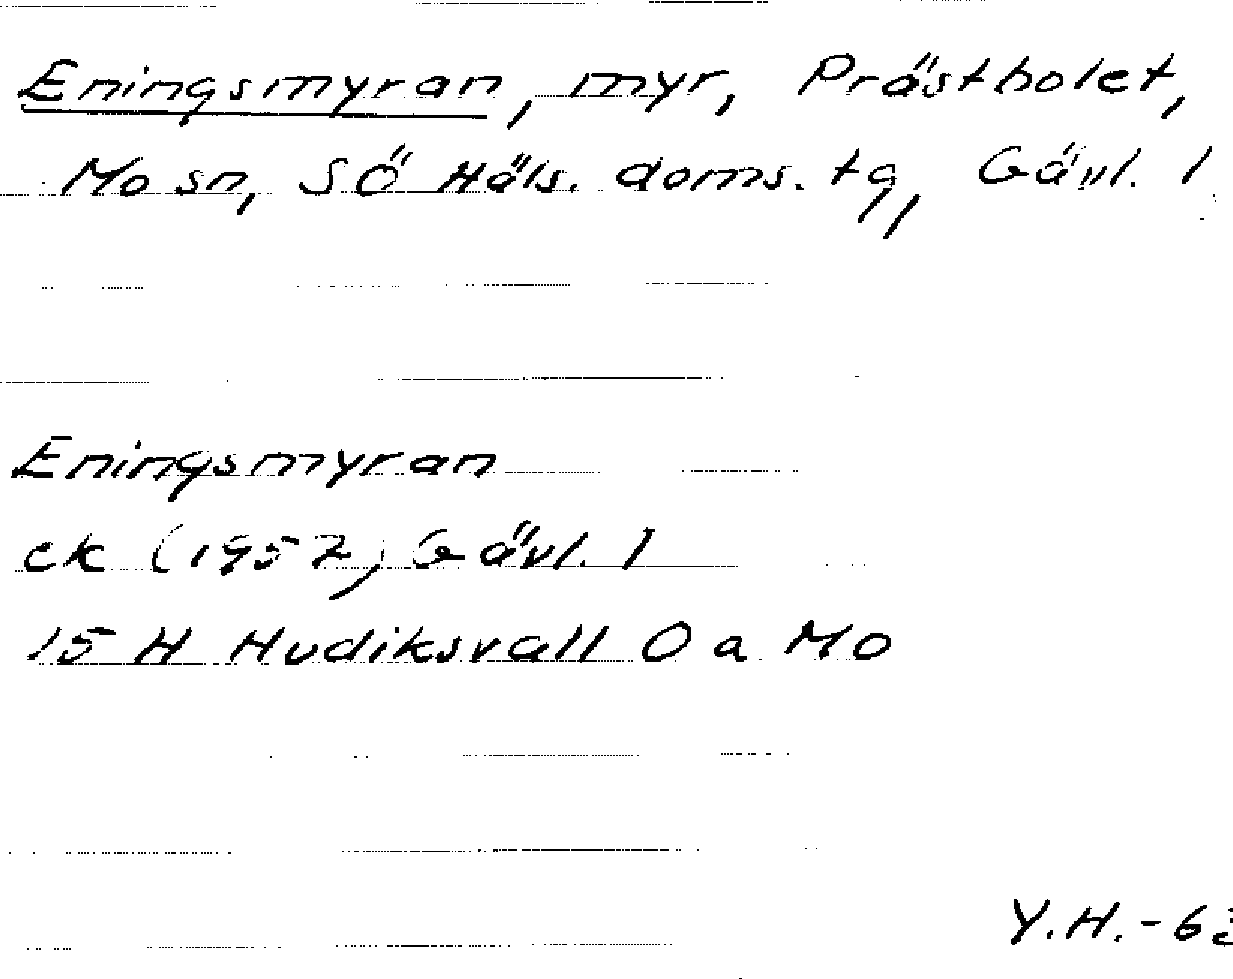 Eningsmyran, myr, Prästbolet,
Mo sn, SÖ Häls. doms. tg, Gävl. l
Eningsmyran
ek (1957) Gävl. l
15 H Hudiksvall O a Mo
Y.H.-63